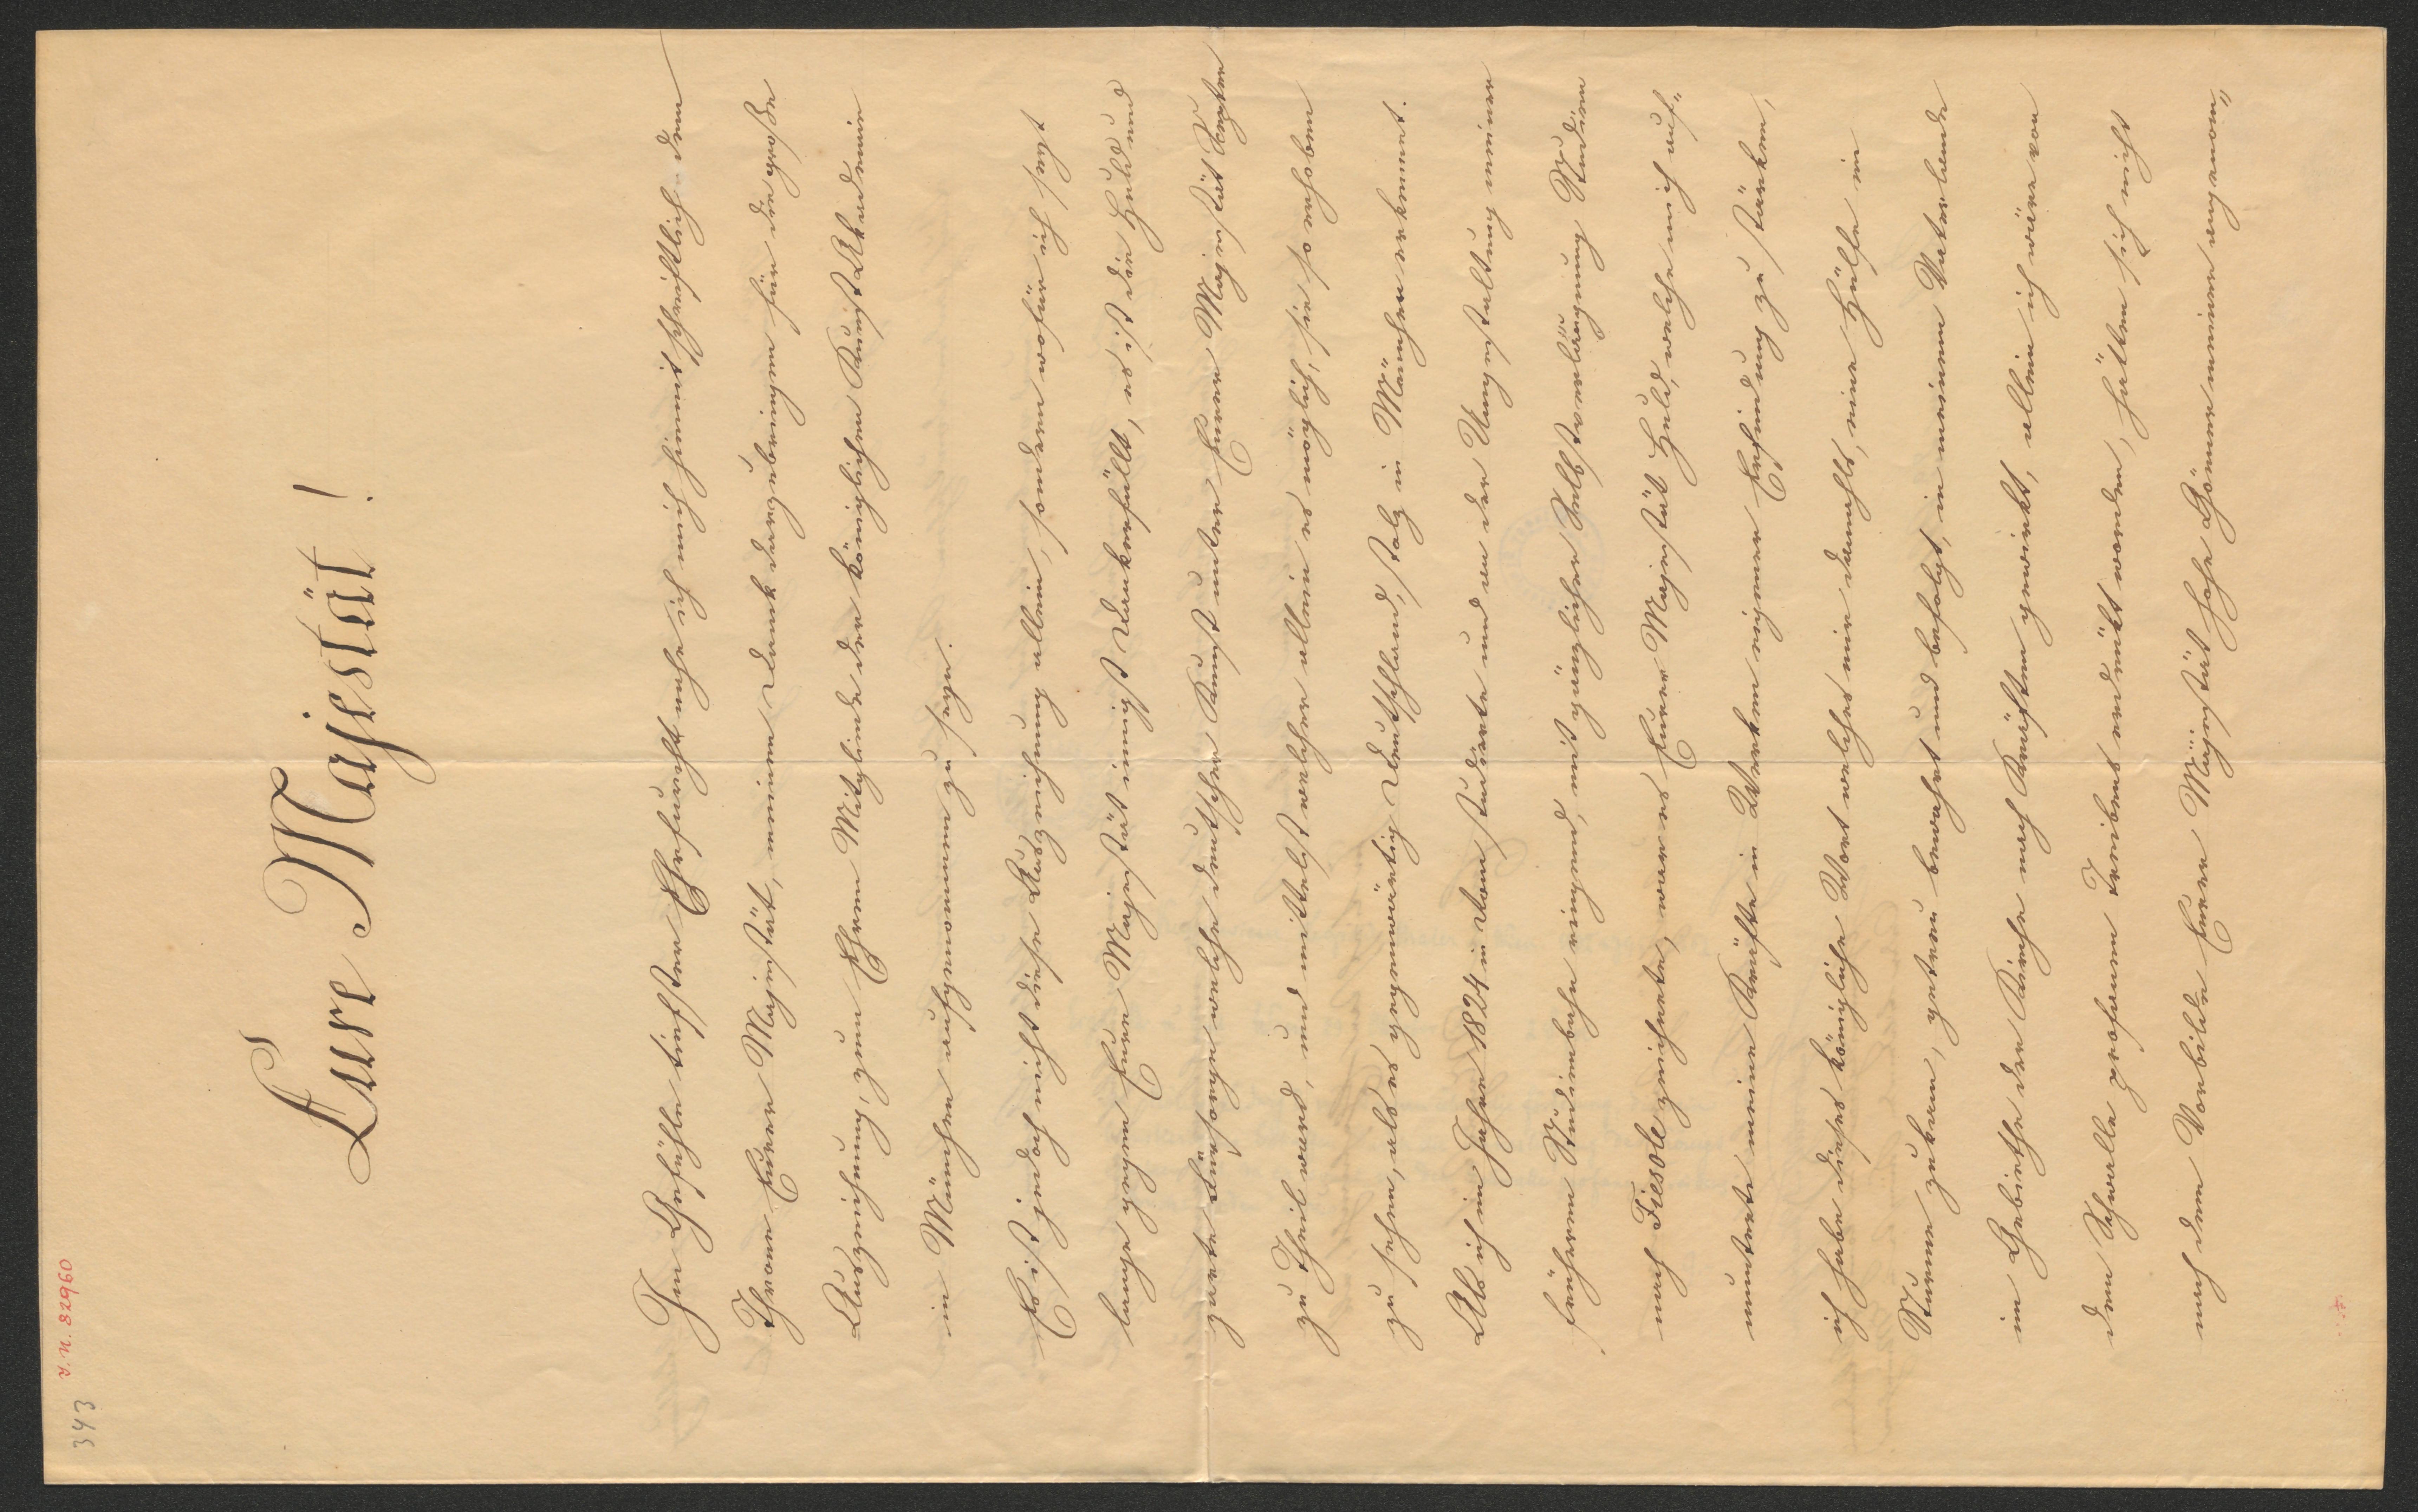 343 I. N. 82960
Eure Majestät!
Im Gefühle tiefster Ehrfurcht nahe ich mich hiemit schriftlich dem
Throne Eurer Majestät, meinen Dank darzubringen für die große
Auszeichnung, zum Ehren Mitgliede der königlichen Kunst Akademie
in München aufgenommen zu seyn.
Es ist jedoch nicht diese Auszeichnung allein, sondern wofür ich seyt
lange gegen Eure Majestät innigst Dankerfüllt, es ist die Huld und
zarte Fürsorge welche deutscher Kunst unter Eurer Majestät Szepter
zu Theil ward, und mittelst welcher allein es möglich, sie so erhoben
zu sehen, als es gegenwärtig Deutschland, stolz in München erkennt.
Als ich im Jahre 1824 in Rom studierte und an der Umgestaltung meiner
früheren Studienbahn ringend, mit gänzlicher Selbstverläugnung Studien
nach Fiesole zeichnete, war es Eurer Majestät Huld, welche mich auf-
munterte meine Kräfte in Werken eigener Erfindung zu stärken,
ich habe dieses königliche Wort welches mir damahls, eine Hülfe im
Sturme zukam, getreu bewahrt und befolgt, in meinem Vaterlande
im Gebiethe der Kirche nach Kräften gewirkt, allein ich wäre von
dem Schwalle profanen Treibens erdrückt worden, hätten sich nicht
nach dem Vorbilde Eurer Majestät hohe Gönner meiner angenom-